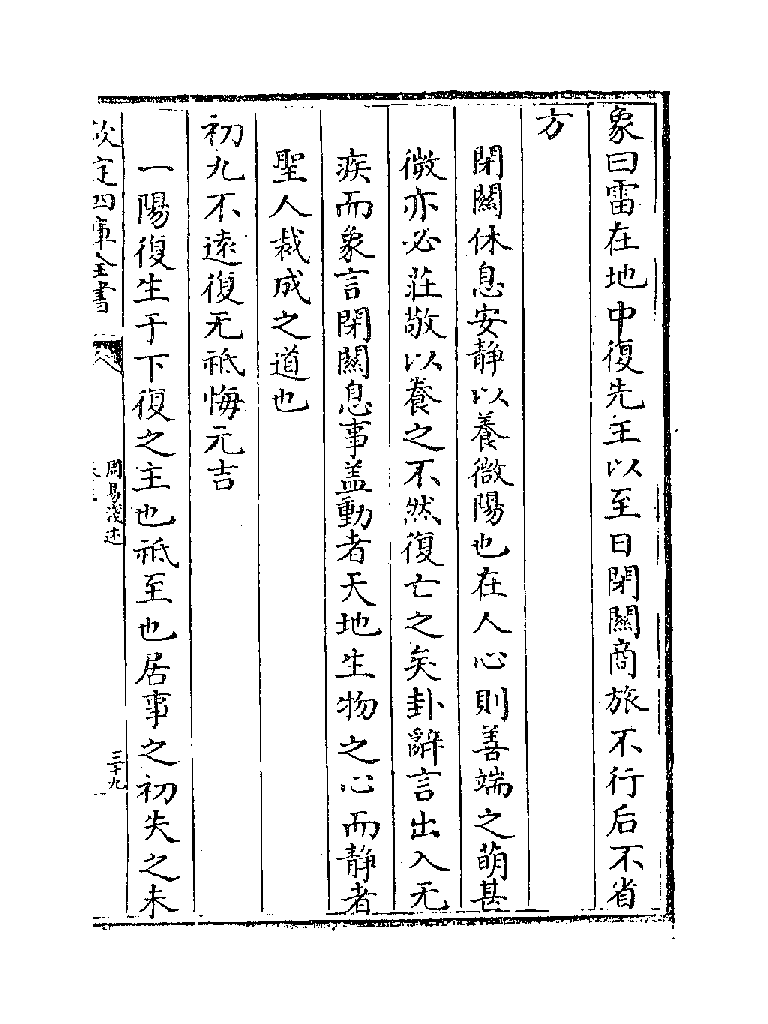 象曰雷在地中復先王以至日閉關商旅不行后不省
方
閉關休息安静以養微陽也在人心則善端之萌甚
微亦必莊敬以養之不然復亡之矣卦辭言出入无
疾而象言閉關息事盖動者天地生物之心而静者
聖人裁成之道也
初九不遠復无祗悔元吉
一陽復生于下復之主也祗至也居事之初失之未
欽定四庫全書
周易淺述
三十九